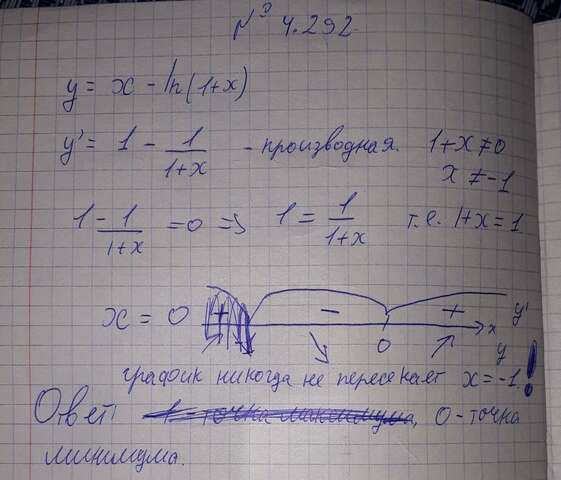 № 4.292.
y = x - ln(1+x)
y' = 1 - 1/(1+x) - производная. 1+x ≠ 0
x ≠ -1
1 - 1/(1+x) = 0 => 1 = 1/(1+x) т.е. 1+x = 1
x = 0 + - + y'
0 x
y
график никогда не пересекает x = -1!
Ответ: 1 - точка максимума, 0 - точка
минимума.